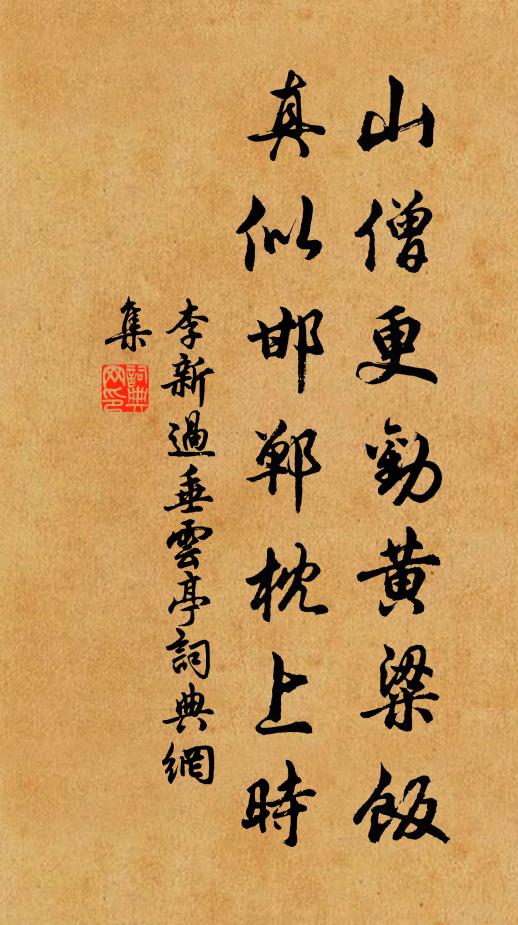 山僧更勸黄粱飯
真似邯鄲枕上時
李新過垂雲亭詞典網
集
詞典網印